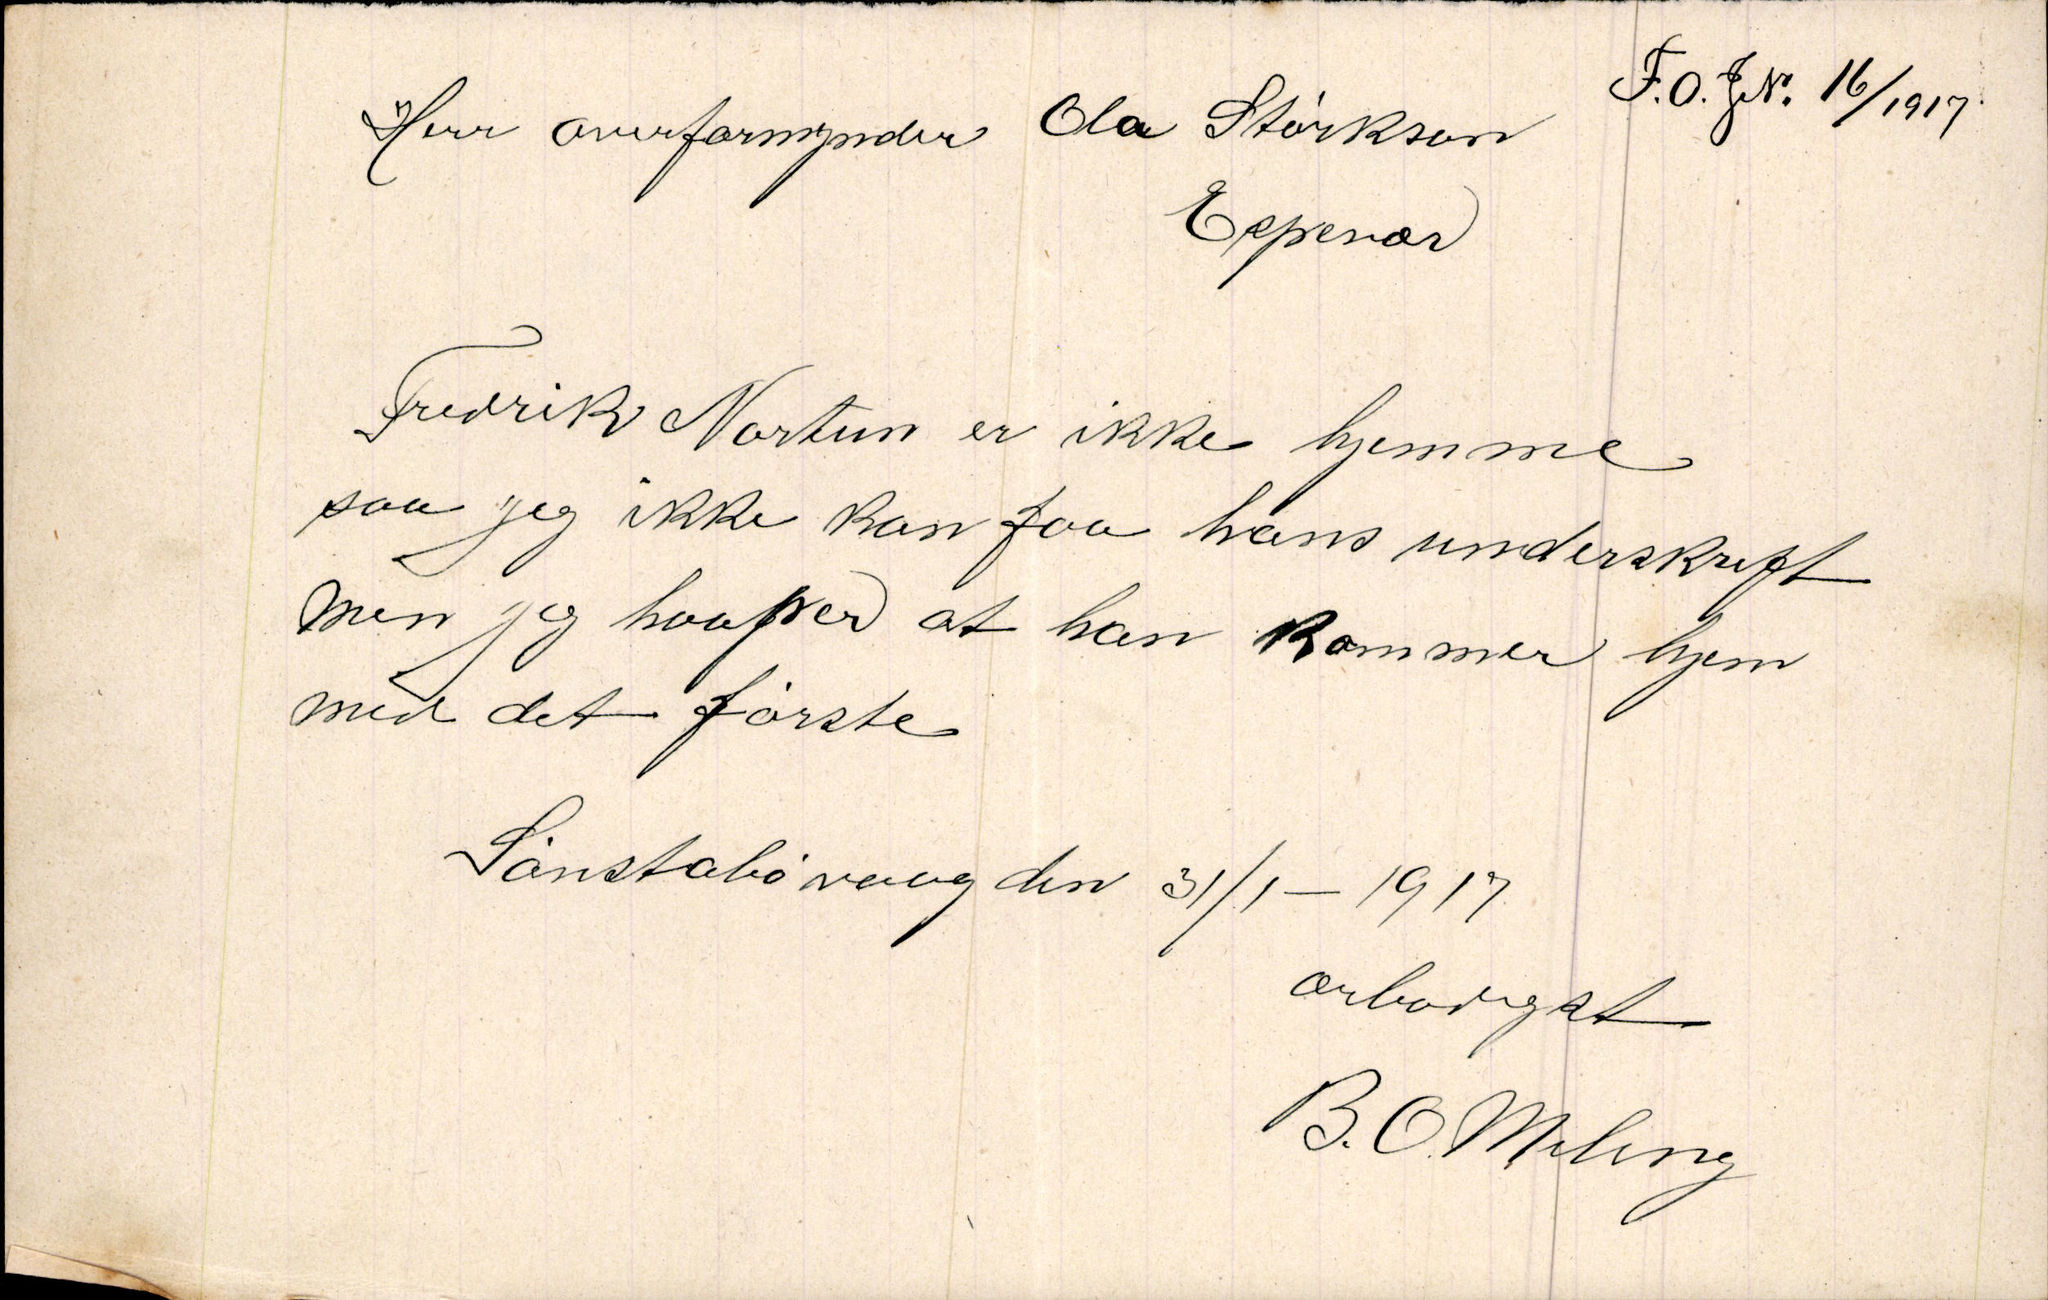 F.O. J.No. 16/1917.
Herr overformynder Ola Störkson
Espevær
Fredrik Nortun er ikke hjemme
saa jeg ikke kan faa hans underskrift
men jeg haaper at han kommer hjem
med det förste
Lönstabövaag den 31/1 – 1917
ærbödigst
B. O. Meling